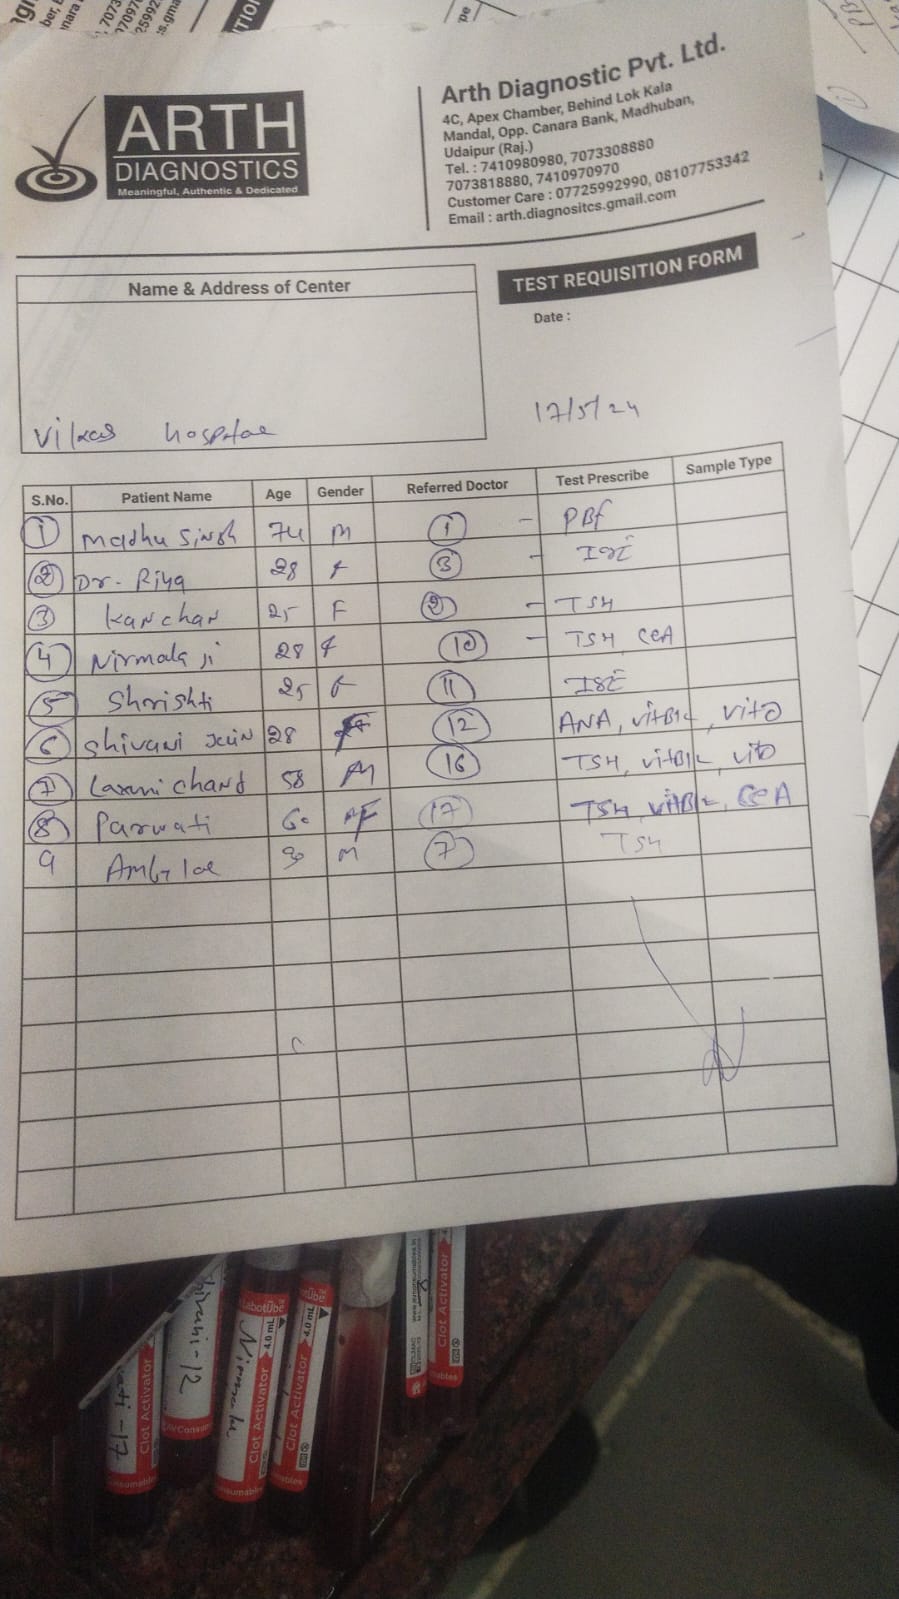 ARTH
DIAGNOSTICS
Meaningful, Authentic & Dedicated
Arth Diagnostic Pvt. Ltd.
4C, Apex Chamber, Behind Lok Kala
Mandal, Opp. Canara Bank, Madhuban,
Udaipur (Raj.)
Tel. : 7410980980, 7073308880
7073818880, 7410970970
Customer Care : 07725992990, 08107753342
Email : arth.diagnositcs.gmail.com
Name & Address of Center
TEST REQUISITION FORM
Date :
17/5/24
Vikas hospital
S.No. Patient Name Age Gender Referred Doctor Test Prescribe Sample Type
1 Madhu Singh 74 M 1 - PBf
2 Dr. Riya 28 f 3 -
3 Kanchan 25 F 2 - TSH
4 Nirmala ji 28 f 10 - TSH CCA
5 Shrishti 25 f 11
6 Shivani Jain 28 F 12 ANA, VitB12, VitD
7 Laxmi chand 58 M 16 TSH, VitB12, VitD
8 Parwati 60 F 17 TSH, VitB12, CCA
9 30 M 7 TSH
Clot Activator
-17
Shivani-12
LabotÜbe
4.0 mL
Nirmala
Clot Activator
4.0 mL
Clot Activator
Clot Activator